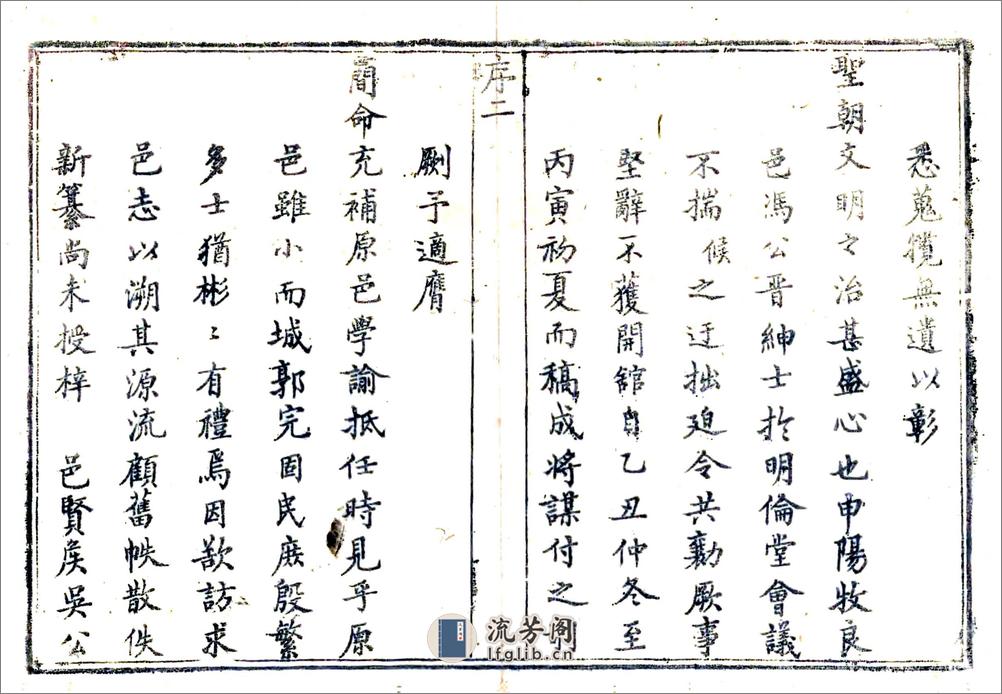 悉蒐獵無遺以彰
聖朝文明之治甚盛心也申陽牧良
邑馮公晋紳士扵明倫堂會議
不揣候之迂拙廹令共勷厥事
堅辭不獲開舘自乙丑仲冬至
丙寅初夏而稿成将謀付之
序二
劂予適膺
簡命充補原邑學諭抵任時見乎原
邑雖小而城郭完固民庶殷繁
多士猶彬〻有禮焉因歆訪求
邑志以溯其源流顧舊帙散佚
新纂尚未授梓 邑賢矦吳公
流芳阁
lfglib.cn